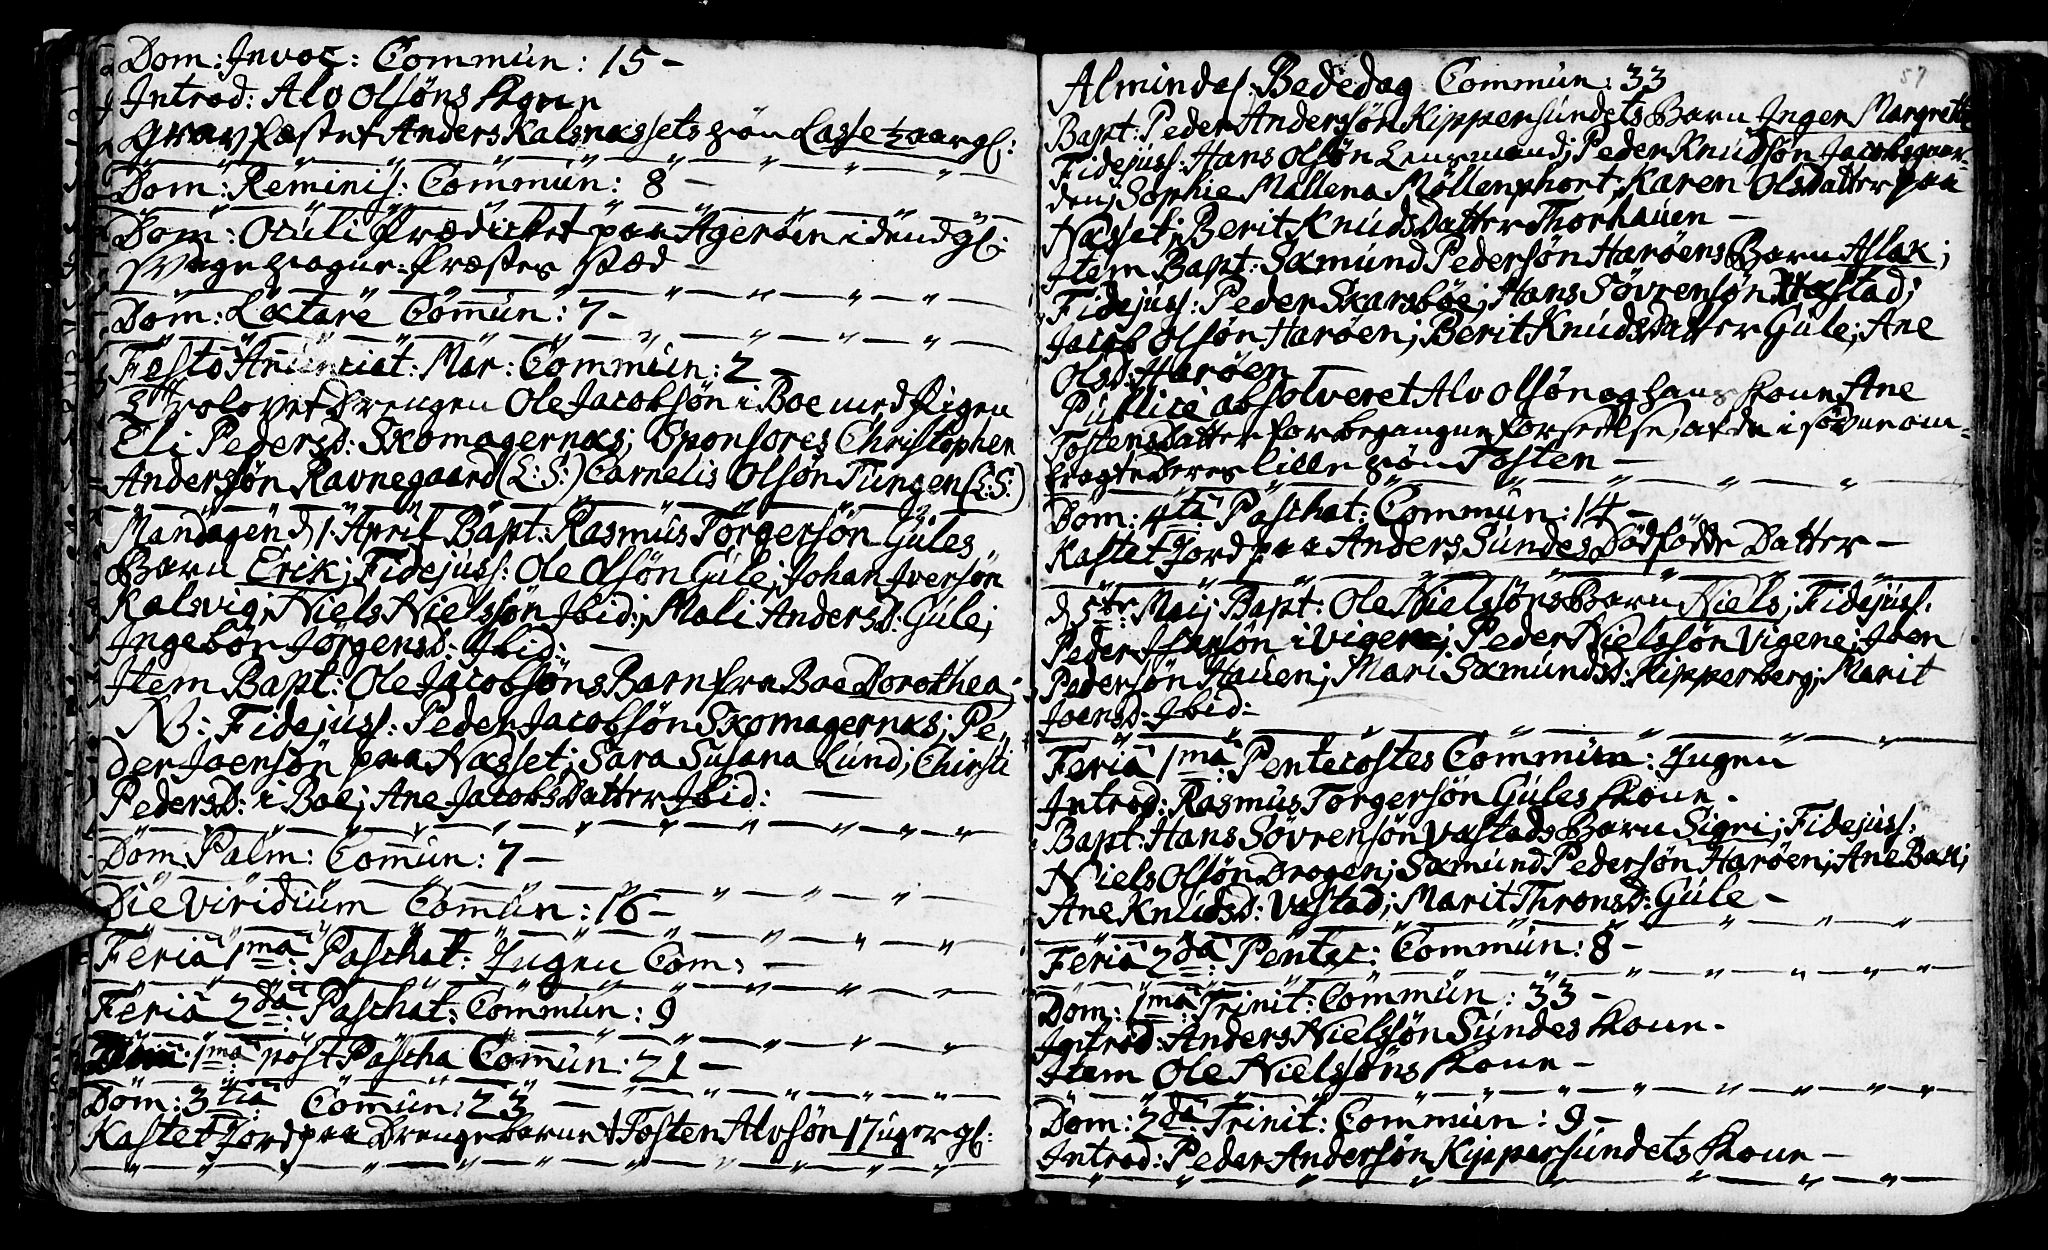 Dom: Invoc: Commun: 15 –
Introd: Alv Olsöns Kone
Gravfæstet Anders Kalsnæssets Sön Lasse ½ aar gl:
Dom: Reminis: Commun: 8 –
Dom: Oculi Prædicket paa Ageröen i dend gl:
Sogne-Præstes Stæd –
Dom: Lætare Com̄un: 7 –
Festo Anunciat: Mar: Commun: 2 –
Trolovet Drengen Ole Jacobsön i Boe med Pigen
Eli Pedersd: Skomagernæs; Sponsores Christopher
Andersön Ravnegaard (L:S:) Cornelis Olsön Tungen (L:S:)
Mandagen d 1 April Bapt: Rasmus Torgersön Gules
Barn Erik; Fidejuss: Ole Olsön Gule; Johan Iversön
Kalsvig; Niels Nielssön Ibid:; Mali Andersd: Gule;
Ingebor Jörgensd: Ibid: –
Item Bapt: Ole Jacobsöns Barn fra Boe Dorothea;
NB: Fidejuss: Peder Jacobsön Skomagernæs; Pe
der Joensön paa Næsset; Sara Susana Lund; Chirsti
Pedersd: i Boe; Ane Jacobsdatter Ibid: –
Dom: Palm: Com̄un: 7 –
Die Viridium Com̄un: 16 –
Feria 1ma: Paschat: Ingen Com: –
Feria 2da: Paschat: Commun: 9
Dom: 1ma: post Pascha Com̄un: 21 –
Dom: 3tia: Com̄un: 23 –
Kastet Jord paa Drengebarnet Tosten Alvsön 17 uger gl:
57
Almindel: Bededag Commun: 33
Bapt: Peder Andersön Kippersundets Barn Inger Margrethe
Fidejuss: Hans Olsön Lensmand; Peder Knudsön Jacobsgaar-
den; Sophie Mallena Möllenphort; Karen Olsdatter paa
Næsset; Berit Knudsdatter Thorhauen –
Item Bapt: Sæmund Pedersön Haröens Barn Aslak;
Fidejuss: Peder Skarsböe; Hans Sövrensön Vastad;
Jacob Olsön Haröen; Berit Knudsdatter Gule; Ane
Olsd: Haröen
Publice absolveret Alv Olsön og hans Kone Ane
Tostensdatter for begangne forseelse, at de i Sövne om-
bragte deres lille Sön Tosten –
Dom: 4ta: Paschat: Commun: 14 –
Kastet Jord paa Anders Sundes Dödfödde Datter –
d 5te: Maij Bapt: Ole Nielssöns Barn Niels; Fidejuss:
Peder Iversön i Vigene; Peder Nielssön Vigene; Joen
Pedersön Hauen; Mari Sæmundsd: Kipperberg; Marit
Joensd: Ibid: –
Feria 1ma: Pentecostes Commun: Ingen
Introd: Rasmus Torgersön Gules Kone –
Bapt: Hans Sövrensön Vastads Barn Sigri; Fidejuss:
Niels Olsön Drogen; Sæmund Pedersön Haröen; Ane Bak;
Ane Knudsd: Vastad; Marit Thronsd: Gule –
Feria 2da: Pentec: Commun: 8 –
Dom: 1ma: Trinit: Commun: 33 –
Introd: Anders Nielssön Sundes Kone –
Item Ole Nielssöns Kone –
Dom: 2da Trinit: Commun: 9 –
Introd: Peder Andersön Kippersundets Kone –